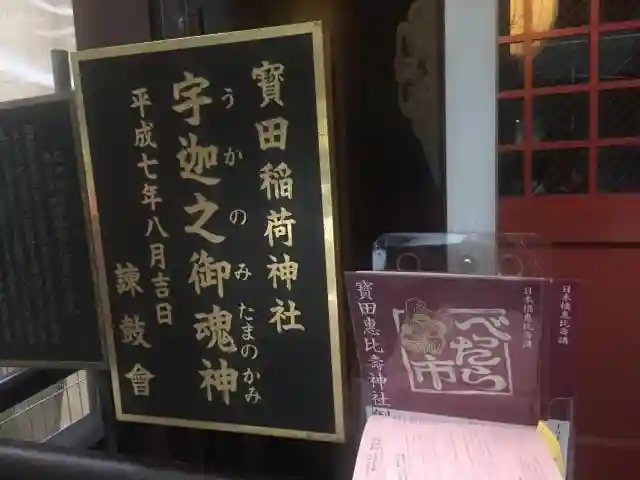 寳田稲荷神社
宇迦之御魂神
うかのみたまのかみ
平成七年八月吉日
諫鼓會
日本橋恵比寿講
べったら
市
寳田恵比壽神社
日本橋恵比寿講